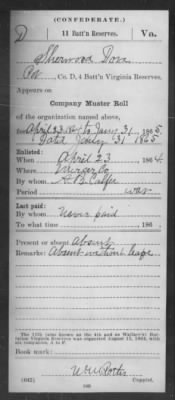 (CONFEDERATE.)
D 11 Batt'n Reserves. Va.
Sherwood Dorr
Pvt, Co. D, 4 Batt'n Virginia Reserves.
Appears on
Company Muster Roll
of the organization named above,
for April 23, 64 to Jany 31, 1865
Dated Jany 31 1865
Enlisted:
When April 23, 1864.
Where
By whom
Period war
Last paid:
By whom Never paid
To what time , 186 .
Present or absent Absent
Remarks: Absent without leave
The 11th (also known as the 4th and as Wallace's) Battalion Virginia Reserves was
Book mark:
(642) Copyist.